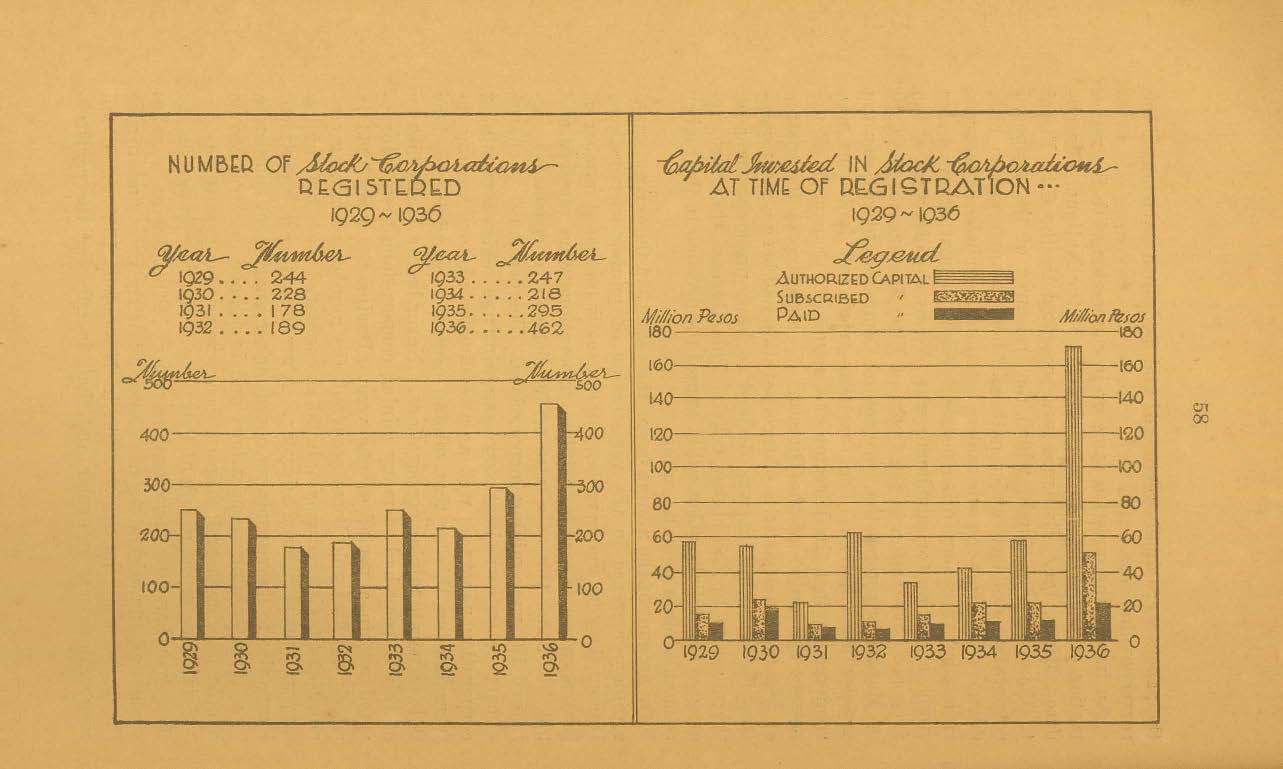 NUMBER OF Stock Corporations
REGISTERED
1929 ~ 1936
Year Number Year Number
1929 .... 244 1933 ..... 247
1930 .... 228 1934 ..... 218
1931 .... 178 1935 ..... 295
1932 .... 189 1936 ..... 462
Number Number
500 500
400 400
300 300
200 200
100 100
0 0
1929 1930 1931 1932 1933 1934 1935 1936
Capital Invested IN Stock Corporations
AT TIME OF REGISTRATION ...
1929 ~ 1936
Legend
AUTHORIZED CAPITAL
SUBSCRIBED "
PAID "
Million Pesos Million Pesos
180 180
160 160
140 140
120 120
100 100
80 80
60 60
40 40
20 20
0 0
1929 1930 1931 1932 1933 1934 1935 1936
58